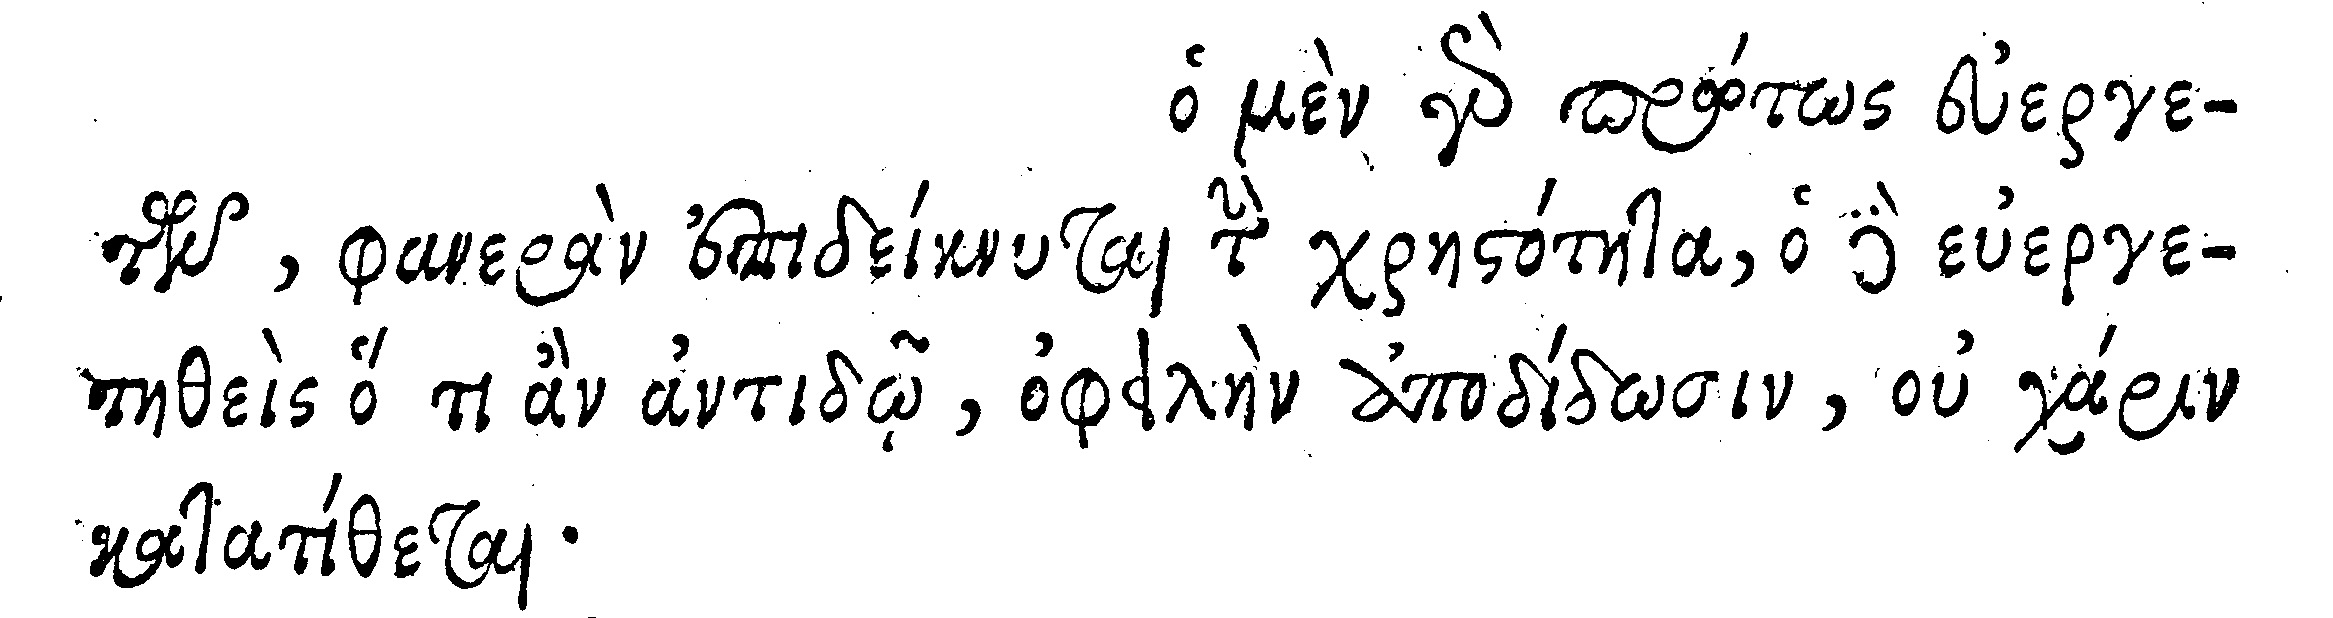 ὁ μὲν γὰρ πρώτως εὐεργε-
τῶν, φανερὰν ἐπιδείκνυται τὴν χρηστότητα, ὁ δὲ εὐεργε-
τηθεὶς ὅ τι ἂν ἀντιδῷ, ὀφειλὴν ἀποδίδωσιν, οὐ χάριν
κατατίθεται·